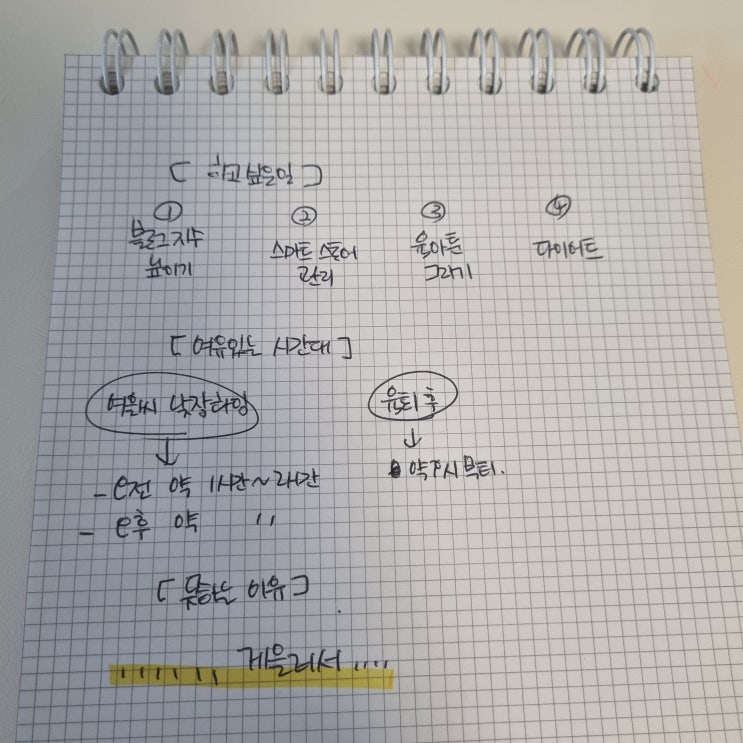 [ 하고싶은일 ]
① ② ③ ④
블로그지수 스마트 스토어 육아툰 다이어트
높이기 관리 그리기
[ 여유있는 시간대 ]
낮잠타임 육퇴 후
↓ ↓
- 오전 약 1시간~2시간 부터.
- 오후 약 〃
[ 못하는 이유 ]
...... 게을러서 ....